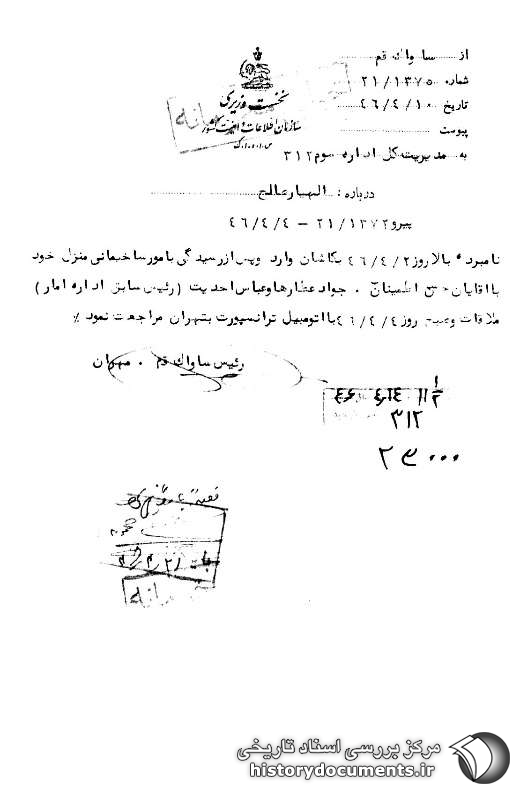 از ساواك قم
شماره ۲۱/۱۳۷۵
تاریخ ۴۶/۴/۱۰
پیوست
نخست وزیری
سازمان اطلاعات و امنیت کشور
س.ا.و.ا.ک
به مدیریت کل اداره سوم ۳۱۲
درباره : الهیار صالح
پیرو ۲۱/۱۳۷۲ - ۴۶/۴/۴
نامبرده بالا روز ۴۶/۴/۲ بکاشان وارد و پس از رسیدگی بامور ساختمانی منزل خود
با اقایان اطمینان . جواد عطارها و عباس احدیت (رئیس سابق اداره امار)
ملاقات و صبح روز ۴۶/۴/۴ با اتومبیل ترانسپورت بتهران مراجعت نمود ٪
رئیس ساواك قم . مهران
۳۱۲
۲۳۰۰۰
مرکز بررسی اسناد تاریخی
historydocuments.ir